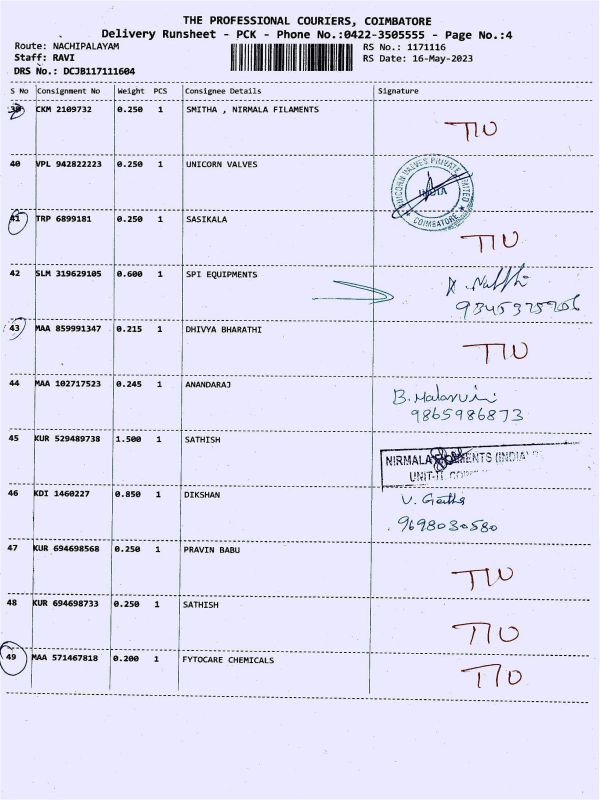 THE PROFESSIONAL COURIERS, COIMBATORE
Delivery Runsheet - PCK - Phone No.:0422-3505555 - Page No.:4
Route: NACHIPALAYAM RS No.: 1171116
Staff: RAVI RS Date: 16-May-2023
DRS No.: DCJB117111604
S No Consignment No Weight PCS Consignee Details Signature
39 CKM 2109732 0.250 1 SMITHA , NIRMALA FILAMENTS
TIU
40 VPL 942822223 0.250 1 UNICORN VALVES
UNICORN VALVES PRIVATE LIMITED
INDIA
COIMBATORE
41 TRP 6899181 0.250 1 SASIKALA
TIU
42 SLM 319629105 0.600 1 SPI EQUIPMENTS
43 MAA 859991347 0.215 1 DHIVYA BHARATHI
TIU
44 MAA 102717523 0.245 1 ANANDARAJ
9865986873
45 KUR 529489738 1.500 1 SATHISH
NIRMALA (INDIA)
UNIT-II
46 KDI 1460227 0.850 1 DIKSHAN
V. Geetha
9698030580
47 KUR 694698568 0.250 1 PRAVIN BABU
TIU
48 KUR 694698733 0.250 1 SATHISH
TIU
49 MAA 571467818 0.200 1 FYTOCARE CHEMICALS
TIU